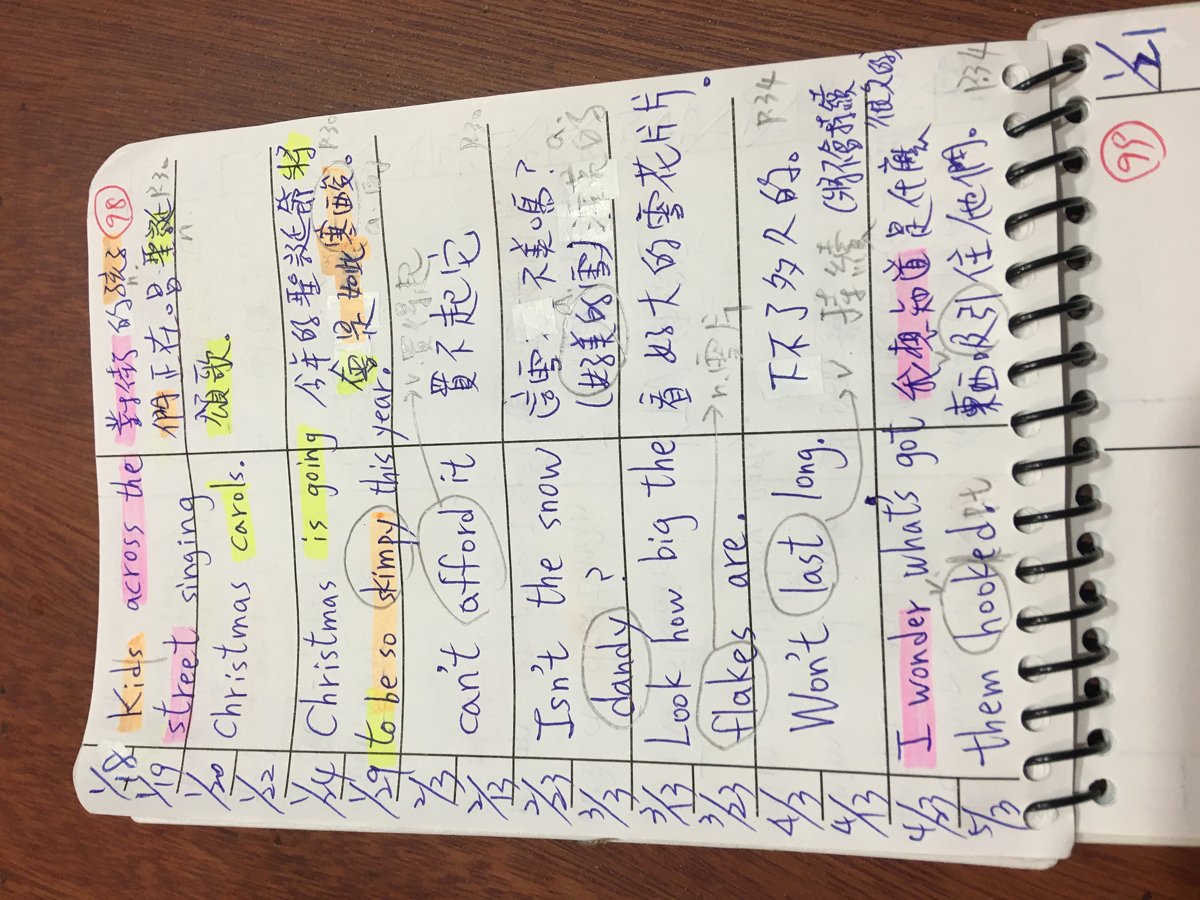 98
1/18
Kids across the
對街的孩子
n.
P.30
1/19
street singing
們正在唱聖誕
n
1/20
Christmas carols.
頌歌。
1/22
1/24
Christmas is going
今年的聖誕節將
1/29
to be so skimpy this year.
會是如此寒酸。
P.30
2/3
can't afford it
v.買得起
買不起它
P.30
2/13
2/23
Isn't the snow
(這雪)不美嗎?
3/3
dandy?
(好美的雪)
a.
3/13
Look how big the
看好大的雪花片片。
3/23
flakes are.
n.雪片
4/3
Won't last long.
下不了多久的。
P.34
4/13
v. 持續
(將不會持續
很久的)
4/23
I wonder what's got
我想知道是什麼
5/3
them hooked.
東西吸引住他們。
P.34
1/21
99